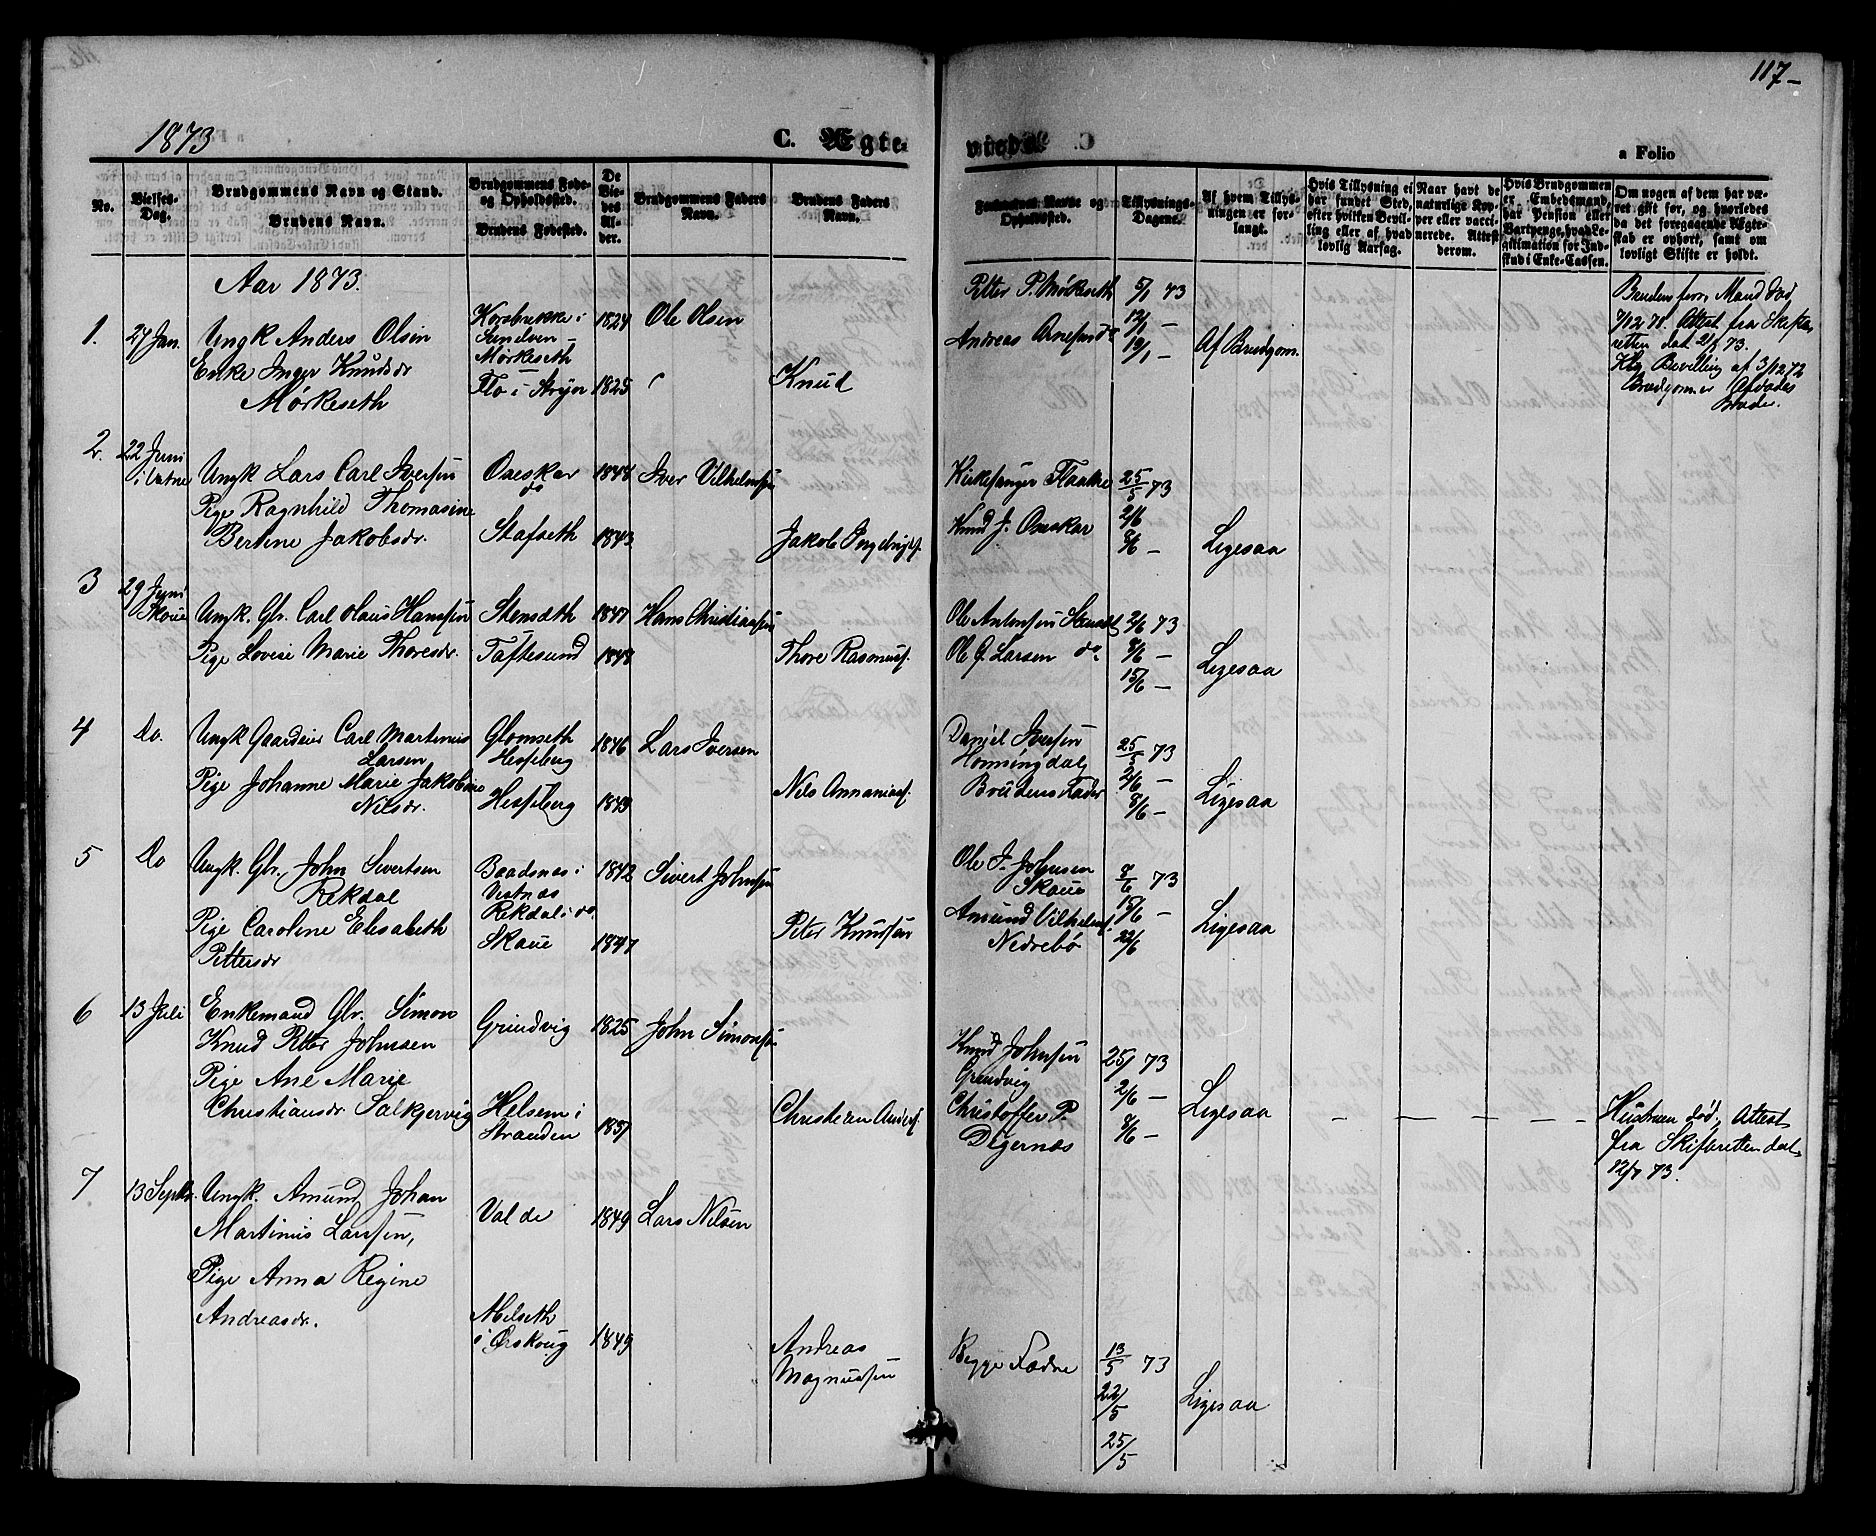 117-
1873
C. Ægte-
vievde. C.
a Folio
No.
Vielses-
Dag.
Brudgommens Navn og Stand.
Brudens Navn.
Brudgommens Føde-
og Opholdssted.
Brudens Fødested.
De
Vie-
des
Al-
der.
Brudgommens Faders
Navn.
Brudens Faders
Navn.
Forlovernes Navne og
Opholdssted.
Tillysnings-
Dagene.
Af hvem Tillys-
ningen er for-
langt.
Hvis Tillysning ei
har fundet Sted,
efter hvilken Bevil-
ling eller af hvad
lovlig Aarsag.
Naar havt de
naturlige Kop-
per eller vacci-
nerede. Attest
derom.
Hvis Brudgommen
er Embedsmand,
har Pension eller
Vartpenge, hvad Le-
gitimation for Ind-
skud i Enke-Cassen.
Om nogen af dem har væ-
ret gift før, og hvorledes
da det foregaaende Ægte-
skab er ophørt, samt om
lovligt Skifte er holdt.
Aar 1873.
1. 27 Jan. Ungk Anders Olsen
Enke Inger Knudsdr
Mørkeseth
Korsbrekke i
Sunelven -
Mørkeseth
Flo i Stryn
1824
1825
Ole Olsen
Knud
Petter P. Mørkeseth
Andreas Arnesen do
5/1 73
12/1 -
19/1 -
Af Brudgom.
Bruden forr. Mand død
7/12 71. Attest fra Skifte
retten dat 2/1 73.
Kg. Bevilling af 3/12 72
2. 22 Juni
i Vatne
Ungk Lars Carl Iversen
Pige Ragnhild Thomasine
Bertine Jakobsdr.
Oueskar
do
Stafseth
1848
1843
Iver Vilhelmsen
Jakob Ingebrigts.
Kirkesanger Flaathe
Knud J. Oueskar
25/5 73
2/6
8/6 -
Ligesaa
3 29 Juni
Skoue
Ungk. Gbr. Carl Olaus Hanssen
Pige Lovise Marie Thoresdr.
Stenseth
Tæftesund
1847
1848
Hans Christiansen
Thore Rasmuss.
Ole Antonsen Stenseth
Ole G. Larsen do.
2/6 73
8/6 -
15/6 -
Ligesaa
4 Do. Ungk Gaardeier Carl Martinus
Larsen
Pige Johanne Marie Jakobine
Nilsdr.
Glomseth
Hesseberg
Hesseberg
1846
1849
Lars Iversen
Nils Annaniass.
Daniel Iversen
Honningdal
Brudens Fader
25/5 73
2/6 -
8/6 -
Ligesaa
5 Do Ungk. Gbr. John Sivertsen
Rekdal
Pige Caroline Elisabeth
Pettersdr
Baadsnæs i
Vestnæs
Rekdal i do.
Skoue
1842
1847
Sivert Johnsen
Peter Knudsen
Ole J. Johnsen
Skoue
Amund Vilhelms.
Nedrebø
8/6 73
15/6 -
22/6
Ligesaa
6 13 Juli Enkemand Gbr. Simon
Knud Petter Johnsen
Pige Ane Marie
Christiansdr. Solkjervig
Grindvig
Helsem i
Stranden
1825
1837
John Simonsen
Christian Anders.
Knud Johnsen
Grindvig
Christoffer P.
Digernæs
25/ 73
2/6 -
8/6 -
Ligesaa
- - - -
Hustruen død, Attest
fra Skifteretten dat.
12/7 73.
7 13 Septbr. Ungk. Amund Johan
Martinus Larssen,
Pige Anna Regine
Andreasdr.
Valde
Melseth
i Ørskoug
1849
1849
Lars Nilsen
Andreas
Magnussen
Begge Fædre
13/5 73
22/5
25/5
Ligesaa